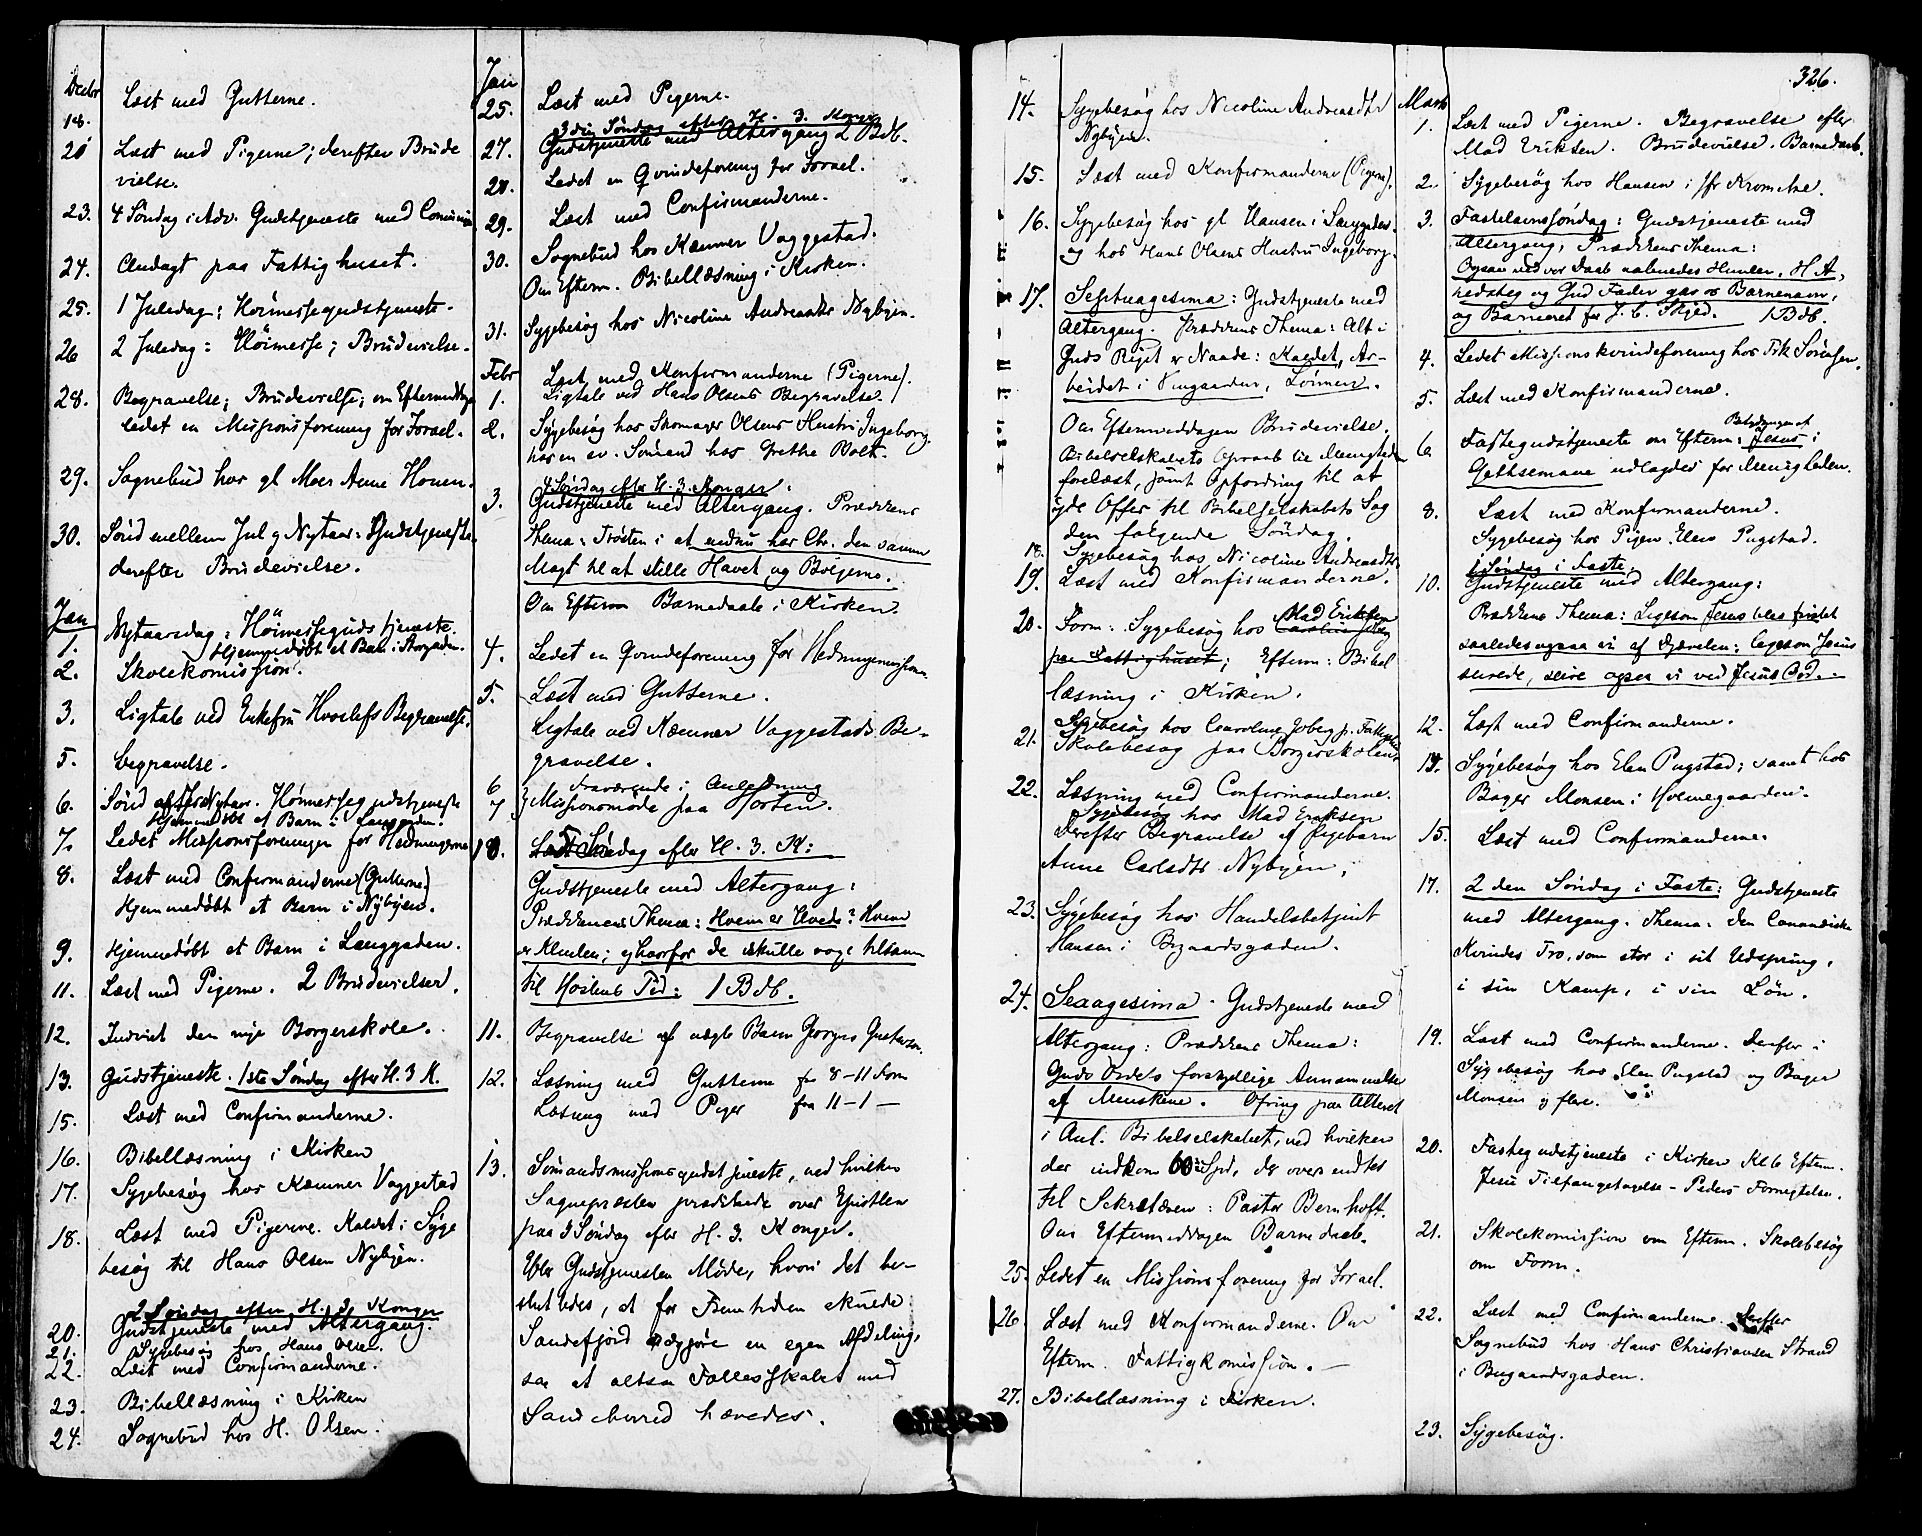 Decbr
18. Læst med Gutterne.
20 Læst med Pigerne; derefter Brude
vielse.
23. 4 Søndag i Adv. Gudstjeneste med
24. Andagt paa Fattighuset.
25. 1 Juledag: Høimessegudstjeneste.
26 2 Juledag: Høimesse; Brudevielse.
28. Begravelse; Brudevielse; om
ledet en Missionsforening for Israel.
29. Sognebud hos gl Moer Anne
30. Sønd mellem Jul og Nytaar: Gudstjeneste
derefter Brudevielse.
Jan
1. Nytaarsdag: Høimessegudstjeneste.
Hjemmedøbt et Barn i
2. Skolekomission.
3. Ligtale ved Enkefru Begravelse.
5. Begravelse.
6. Sønd efter Nytaar. Høimessegudstjeneste
Hjemmedøbt et Barn i Langgaden.
7. Ledet Missionsforeningen for Hedningerne
8. Læst med Confirmanderne (Gutterne)
Hjemmedøbt et Barn i Nybyen.
9. Hjemmedøbt et Barn i Langgaden.
11. Læst med Pigerne. 2 Brudevielser.
12. Indviet den nye Borgerskole.
13. Gudstjeneste. 1ste Søndag efter H. 3 K.
15. Læst med Confirmanderne.
16. Bibellæsning i Kirken
17. Sygebesøg hos Kæmner Vaggestad
18. Læst med Pigerne. Kaldet i Syge
besøg til Hans Olsen Nybyen.
2 Søndag efter H. 3 Konger
20. Gudstjeneste med Altergang.
21. Sygebesøg hos Hans Olsen.
22. Læst med Confirmanderne.
23. Bibellæsning i Kirken
24. Sognebud hos H. Olsen.
Jan
25. Læst med Pigerne.
3die Søndag efter H. 3. Konger
27. Gudstjeneste med Altergang 2 Bdb.
28. Ledet en Qvindeforening for Israel.
29. Læst med Confirmanderne.
30. Sognebud hos Kæmner Vaggestad.
Om Efterm. Bibellæsning i Kirken.
31. Sygebesøg hos Nicoline Andreasdtr Nybyen.
Febr
1. Læst med Konfirmanderne (Pigerne).
Ligtale ved Hans Olsens Begravelse.
2. Sygebesøg hos Skomager Olsens Hustru Ingeborg
hos en sv. Sømand hos Grethe Bolt.
4 Søndag efter H. 3. Konger.
3. Gudstjeneste med Altergang. Prædikens
Thema: Trøsten i at endnu har Chr. den samme
Magt til at stille Havet og Bølgerne.
Om Efterm Barnedaab i Kirken.
4. Ledet en Qvindeforening for
5. Læst med Gutterne.
Ligtale ved Kæmner Vaggestads Be-
gravelse.
6 Fraværende i Anledning
7 Missionsmøde paa Horten.
10. 5 Søndag efter H. 3. K:
Gudstjeneste med Altergang:
Prædikenens Thema: Hvem er Hvede? Hvem
er Klinten; og hvorfor de skulle voxe tilsam
til Høstens Tid: 1 Bdb.
11. Begravelse af uægte Barn Georges Gustavson.
12. Læsning med Gutterne fra 8–11 Form
Læsning med Piger fra 11–1 –
13. Sømandsmissionsgudstjeneste, ved hvilken
Sognepræsten prædikede over Epistlen
paa 3 Søndag efter H. 3. Konger.
Efter Gudstjenesten Møde, hvori det be-
sluttedes, at for Fremtiden skulde
Sandefjord udgjøre en egen Afdeling,
saa at altsaa Fællesskabet med
Sandeherred hævedes.
14. Sygebesøg hos Nicoline Andreasdtr
Nybyen.
15. Læst med Konfirmanderne (Pigerne).
16. Sygebesøg hos gl Hansen i
og hos Hans Olsens Hustru Ingeborg.
17. Septuagesima: Gudstjeneste med
Altergang. Prædikens Thema: Alt i
Guds Riget er Naade: Kaldet, Ar-
beidet i Vingaarden, Lønnen.
Om Eftermiddagen Brudevielse.
Bibelselskabets Opraab til Menigheden
forelæst, samt Opfordring til at
yde Offer til Bibelselskabets Sag
den følgende Søndag.
18. Sygebesøg hos Nicoline Andreasdtr
19. Læst med Konfirmanderne.
20. Form: Sygebesøg hos Mad Eriksen
paa Fattighuset; Efterm: Bibel
læsning i Kirken.
21. Sygebesøg hos Caroline
Skolebesøg paa Borgerskolen.
22. Læsning med Confirmanderne.
Sygebesøg hos Mad Eriksen
derefter Begravelse af Pigebarn
Anne Carlsdtr Nybyen;
23. Sygebesøg hos Handelsbetjent
Hansen i Bugaardsgaden.
24. Sexagesima. Gudstjeneste med
Altergang: Prædikens Thema:
Guds Ordets forskjellige Annammelse
af Menskene. Ofring paa Alteret
i Anl. Bibelselskabet, ved hvilken
der indkom 60 Spd, der oversendtes
til Sekretæren: Pastor Bernhoft.
Om Eftermiddagen Barnedaab.
25. Ledet en Missionsforening for Israel.
26. Læst med Konfirmanderne. Om
Efterm. Fattigkomission. –
27. Bibellæsning i Kirken.
326.
Marts
1. Læst med Pigerne. Begravelse efter
Mad Eriksen. Brudevielse. Barnedaab.
2. Sygebesøg hos Hansen i
3. Fastelavnssøndag: Gudstjeneste med
Altergang, Prædikens Thema:
Ogsaa ved vor Daab aabnedes Himlen, H. A.
nedsteg og Gud Fader gav os Barnenavn,
og Barneret for J. C. Skyld. 1 Bdb.
4. Ledet Missionskvindeforening hos Frk Sørensen.
5. Læst med Konfirmanderne.
6. Fastegudstjeneste om Efterm: Betydningen af Jesus i
Gethsemane udlagdes for Menigheden.
8. Læst med Konfirmanderne.
Sygebesøg hos Pigen Elen Pugstad.
1 Søndag i Faste.
10. Gudstjeneste med Altergang:
Prædikens Thema: Ligesom Jesus blev fristet
saaledes ogsaa vi af Djævelen; ligesom Jesus
seirede, seire ogsaa vi ved Jesus Ord.
12. Læst med Confirmanderne.
13. Sygebesøg hos Elen Pugstad; samt hos
Bager Monsen i Holmegaarden.
15. Læst med Confirmanderne.
17. 2den Søndag i Faste: Gudstjeneste
med Altergang. Thema: Den Cananæiske
Kvindes Tro, som stor i sit Udspring,
i sin Kamp, i sin Løn.
19. Læst med Confirmanderne. Derefter i
Sygebesøg hos Elen Pugstad og Bager
Monsen og flere.
20. Fastegudstjeneste i Kirken Kl 6 Efterm.
Jesu Tilfangetagelse – Peders Fornegtelse.
21. Skolekomission om Efterm. Skolebesøg
om Form.
22. Læst med Confirmanderne. Derefter
Sognebud hos Hans Christiansen Strand
i Bugaardsgaden.
23. Sygebesøg.